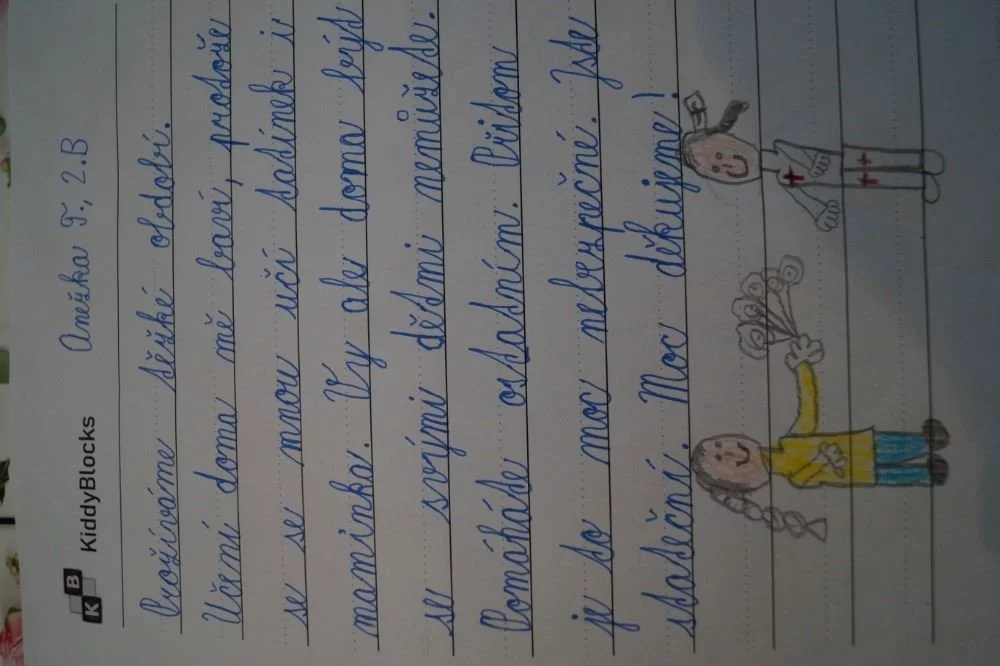 KB KiddyBlocks
Anežka T., 2.B
Prožíváme těžké období.
Učení doma mě baví, protože
se se mnou učí tatínek i
maminka. Vy ale doma být
se svými dětmi nemůžete.
Pomáháte ostatním. Přitom
je to moc nebezpečné. Jste
stateční. Moc děkujeme!